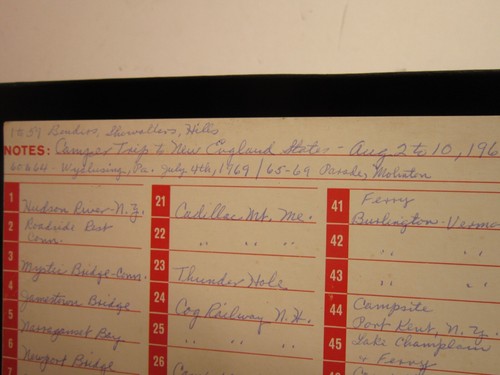 1 to 59 Benders, Showalters, Hills
NOTES: Camper Trip to New England States - Aug 2 to 10, 196
60 & 64 - Wyalusing, Pa. July 4th, 1969 / 65-69 Parade, Mohnton
1 Hudson River - N.Y.
2 Roadside Rest
Conn.
3 Mystic Bridge - Conn.
4 Jamestown Bridge
5 Narragansett Bay
6 Newport Bridge
7
21 Cadillac Mt. Me.
22 " " "
23 Thunder Hole
24 Cog Railway N.H.
25 " " "
26
41 Ferry
Burlington - Vermo
42 " "
43 " "
44 Campsite
Port Kent, N.Y.
45 Lake Champlain
& Ferry